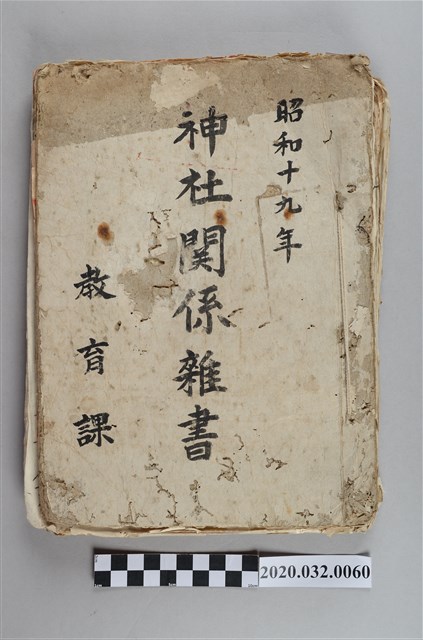 昭和十九年
神社関係雜書
教育課
2020.032.0060